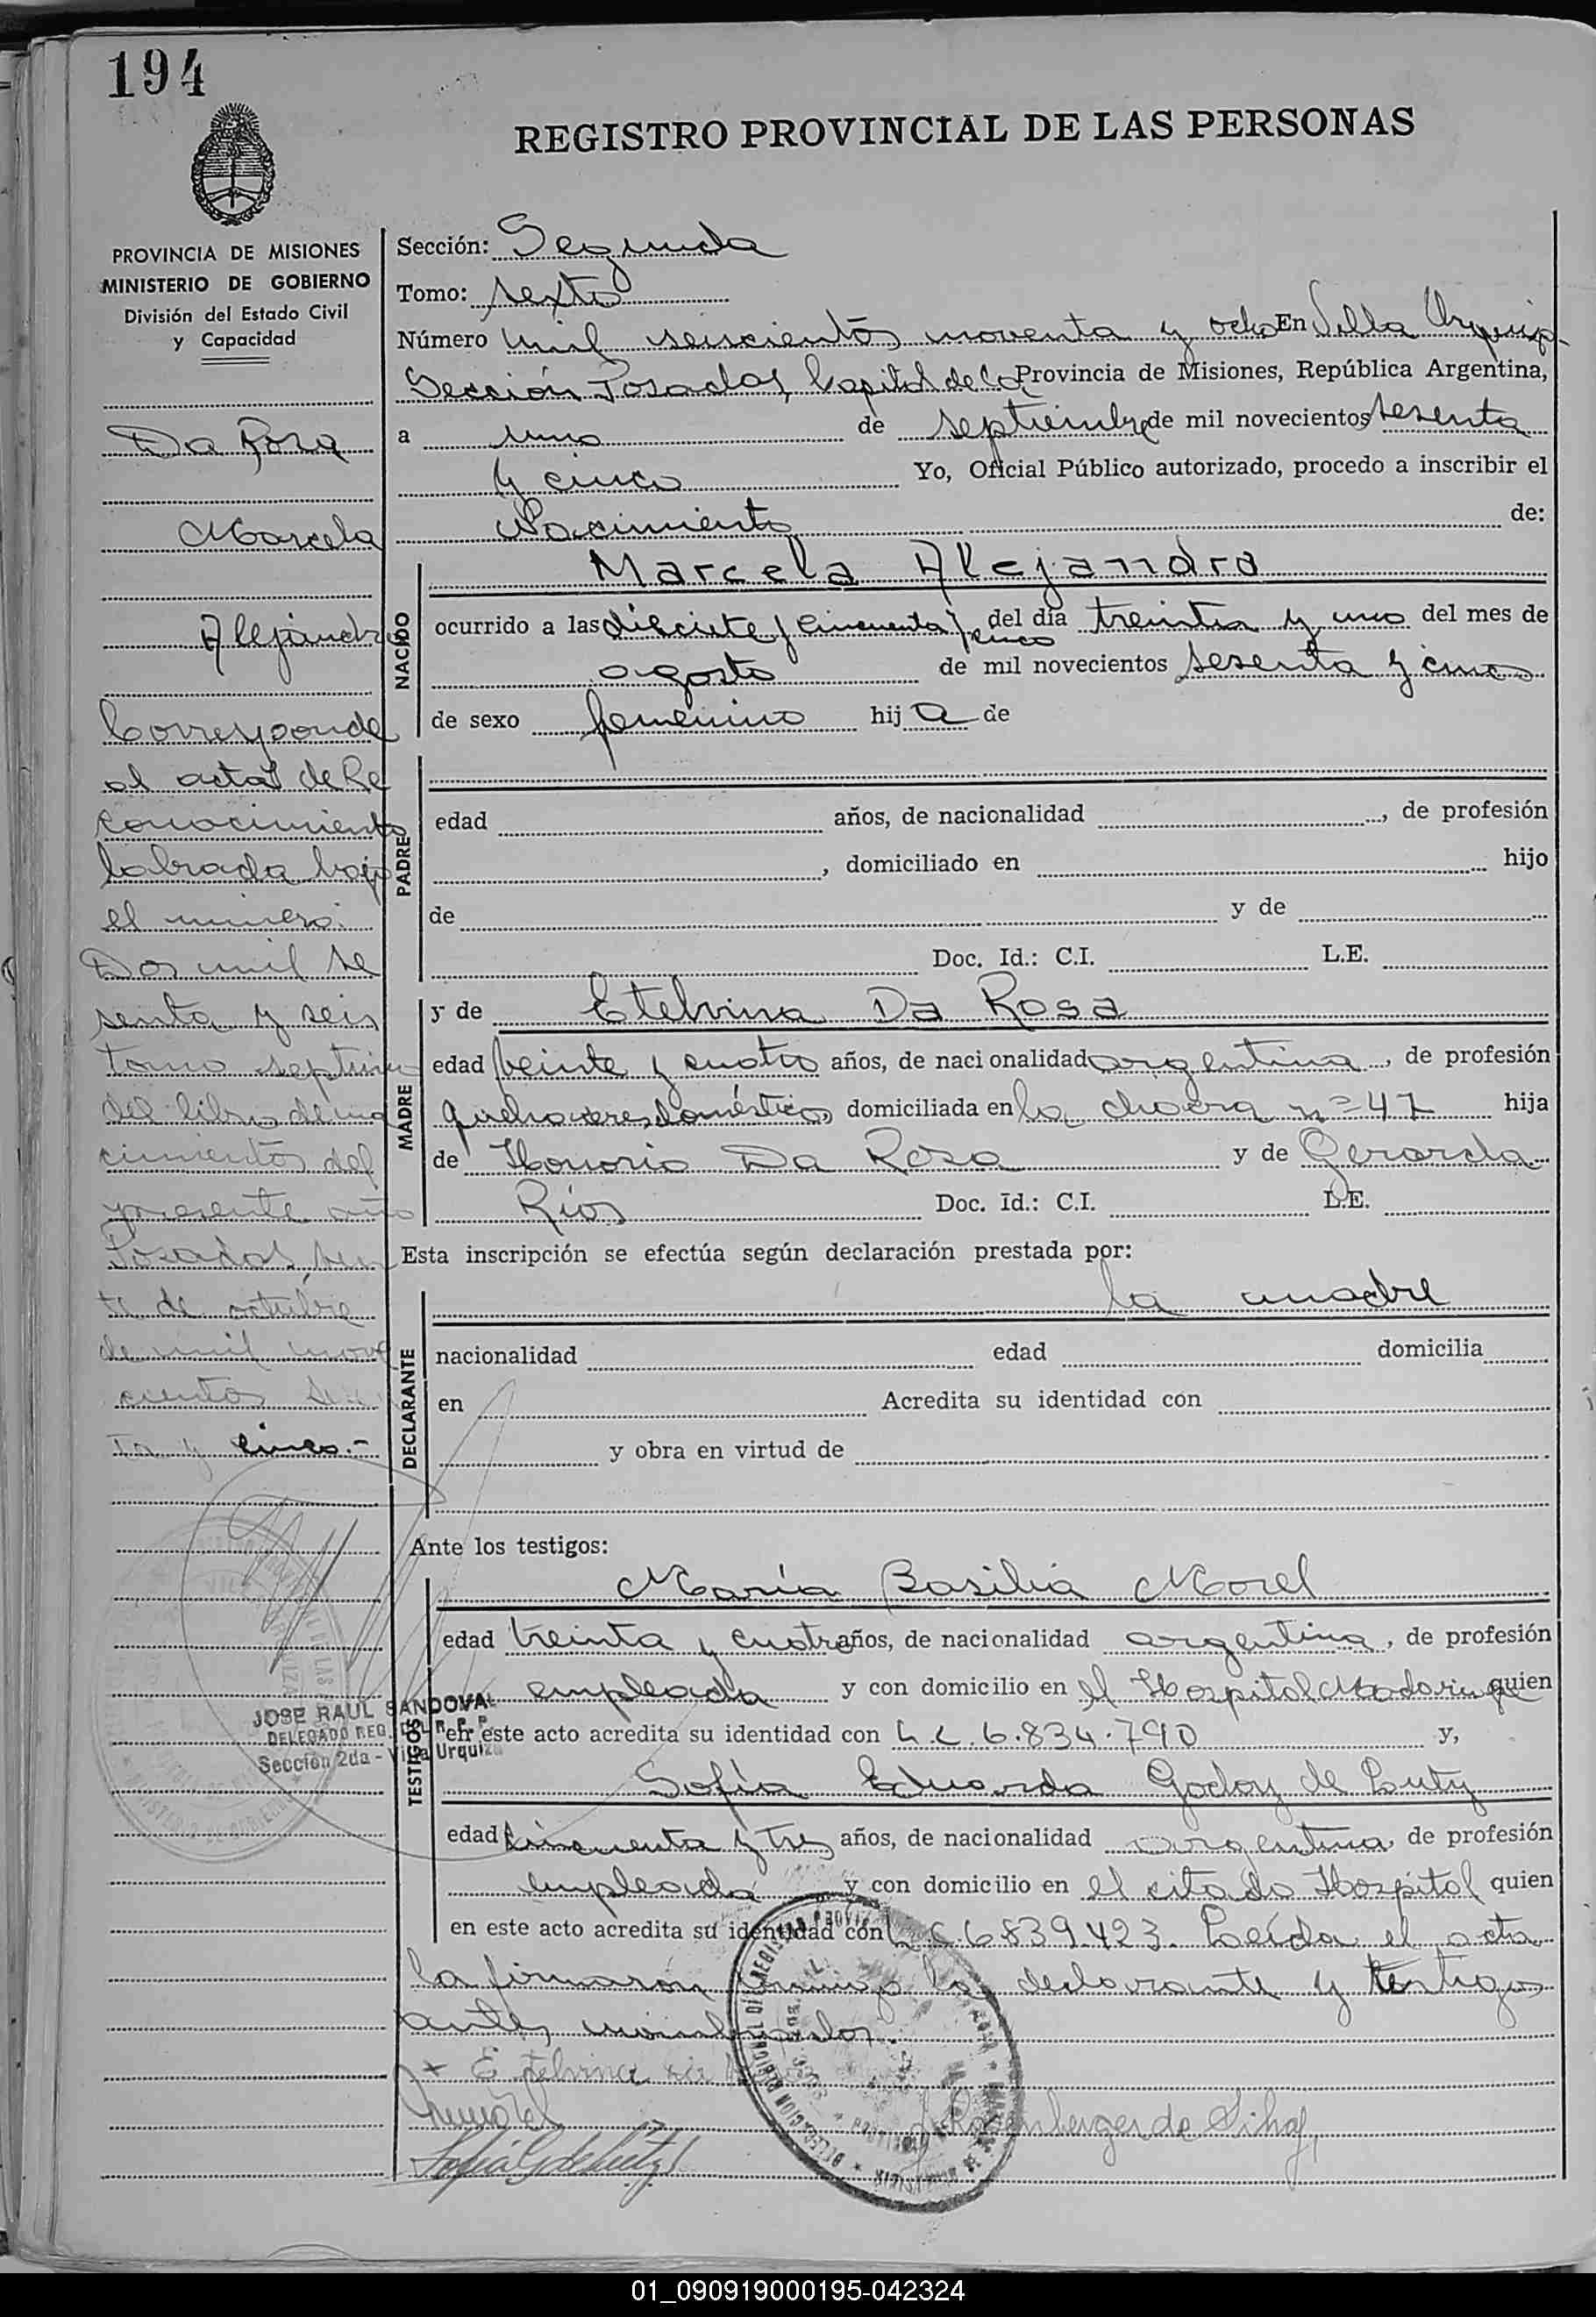 194
REGISTRO PROVINCIAL DE LAS PERSONAS
PROVINCIA DE MISIONES
MINISTERIO DE GOBIERNO
División del Estado Civil
y Capacidad
Da Rosa
Marcela
Alejandra
Corresponde
al acta de Re
conocimiento
labrada bajo
el número:
Dos mil se
senta y seis
tomo septimo
del libro de na
cimientos del
presente año
Posadas,
de octubre
de mil nove
cientos
ta y cinco.-
JOSE RAUL SANDOVAL
DELEGADO REG. DE L R. P. P.
Sección 2da - Villa Urquiza
Sección: Segunda
Tomo: sexto
Número mil seiscientos noventa y ocho En Villa Urquiza-
Sección Posadas, Capital de la Provincia de Misiones, República Argentina,
a uno de septiembre de mil novecientos sesenta
y cinco Yo, Oficial Público autorizado, procedo a inscribir el
Nacimiento de:
NACIDO
Marcela Alejandra
ocurrido a las diecisiete y cincuenta y cinco del día treinta y uno del mes de
agosto de mil novecientos sesenta y cinco
de sexo femenino hij a de
PADRE
edad años, de nacionalidad , de profesión
, domiciliado en hijo
de y de
Doc. Id.: C.I. L.E.
MADRE
y de Etelvina Da Rosa
edad veinte y cuatro años, de nacionalidad argentina, de profesión
quehaceres domésticos, domiciliada en la chacra nº 47 hija
de Honorio Da Rosa y de Gerarda
Ríos Doc. Id.: C.I. L.E.
Esta inscripción se efectúa según declaración prestada por:
DECLARANTE
la madre
nacionalidad edad domicilia
en Acredita su identidad con
y obra en virtud de
Ante los testigos:
TESTIGOS
María Basilia Morel
edad treinta y cuatro años, de nacionalidad argentina, de profesión
empleada y con domicilio en el Hospital Madariaga quien
en este acto acredita su identidad con L.C. 6.834.790 y,
Sofía Eduarda Godoy de Lutz
edad cincuenta y tres años, de nacionalidad argentina, de profesión
empleada y con domicilio en el citado Hospital quien
en este acto acredita su identidad con L.C. 6839.423. Leída el acta
la firmaron conmigo la declarante y testigos
antes nombrados.
01_090919000195-042324